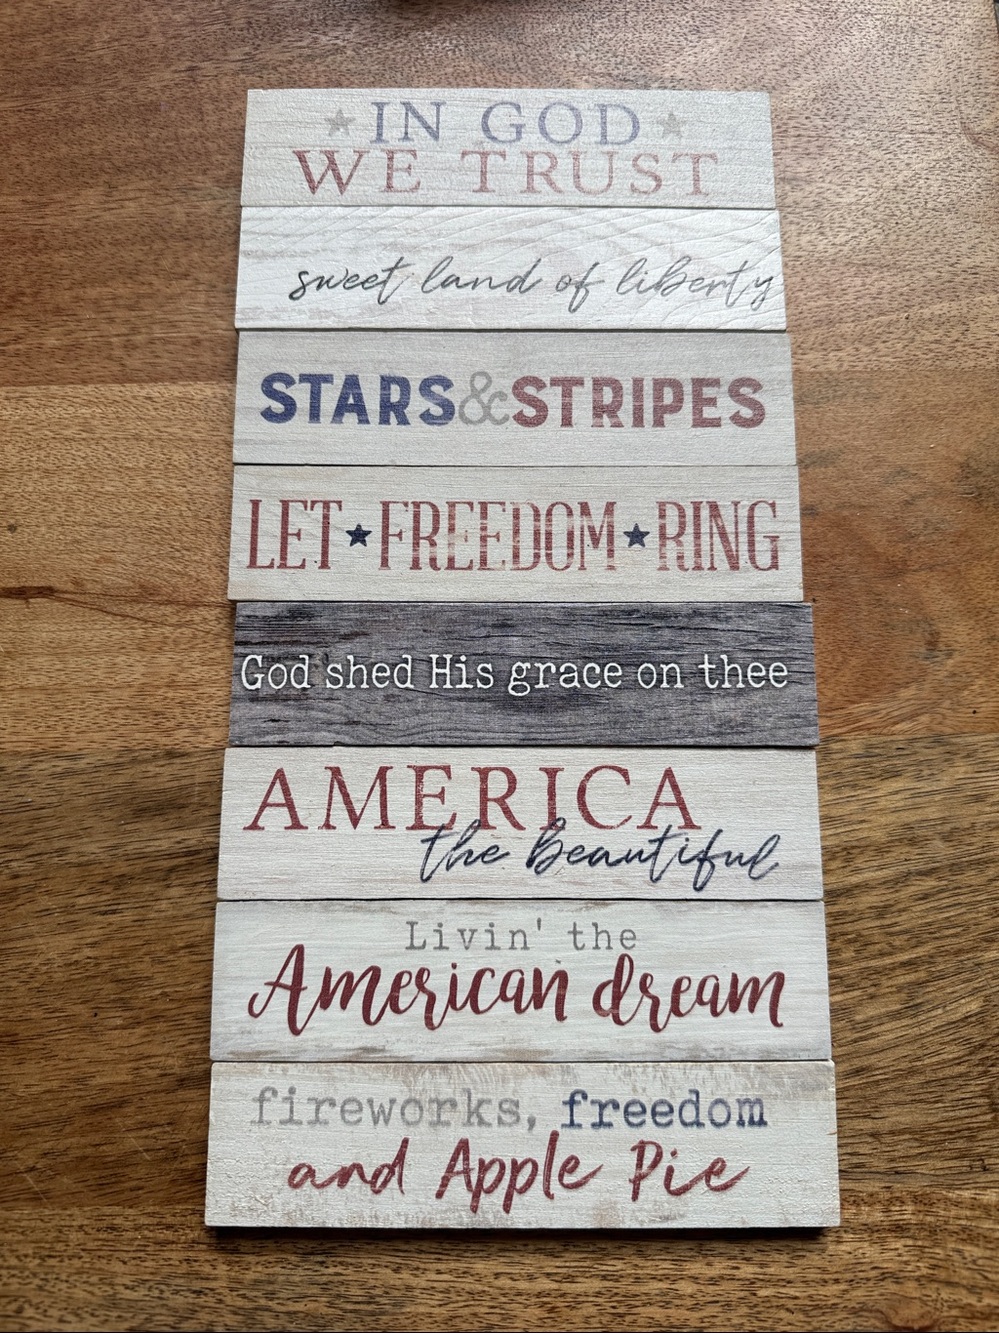 IN GOD
WE TRUST
sweet land of liberty
STARS & STRIPES
LET ★ FREEDOM ★ RING
God shed His grace on thee
AMERICA
the Beautiful
Livin' the
American dream
fireworks, freedom
and Apple Pie